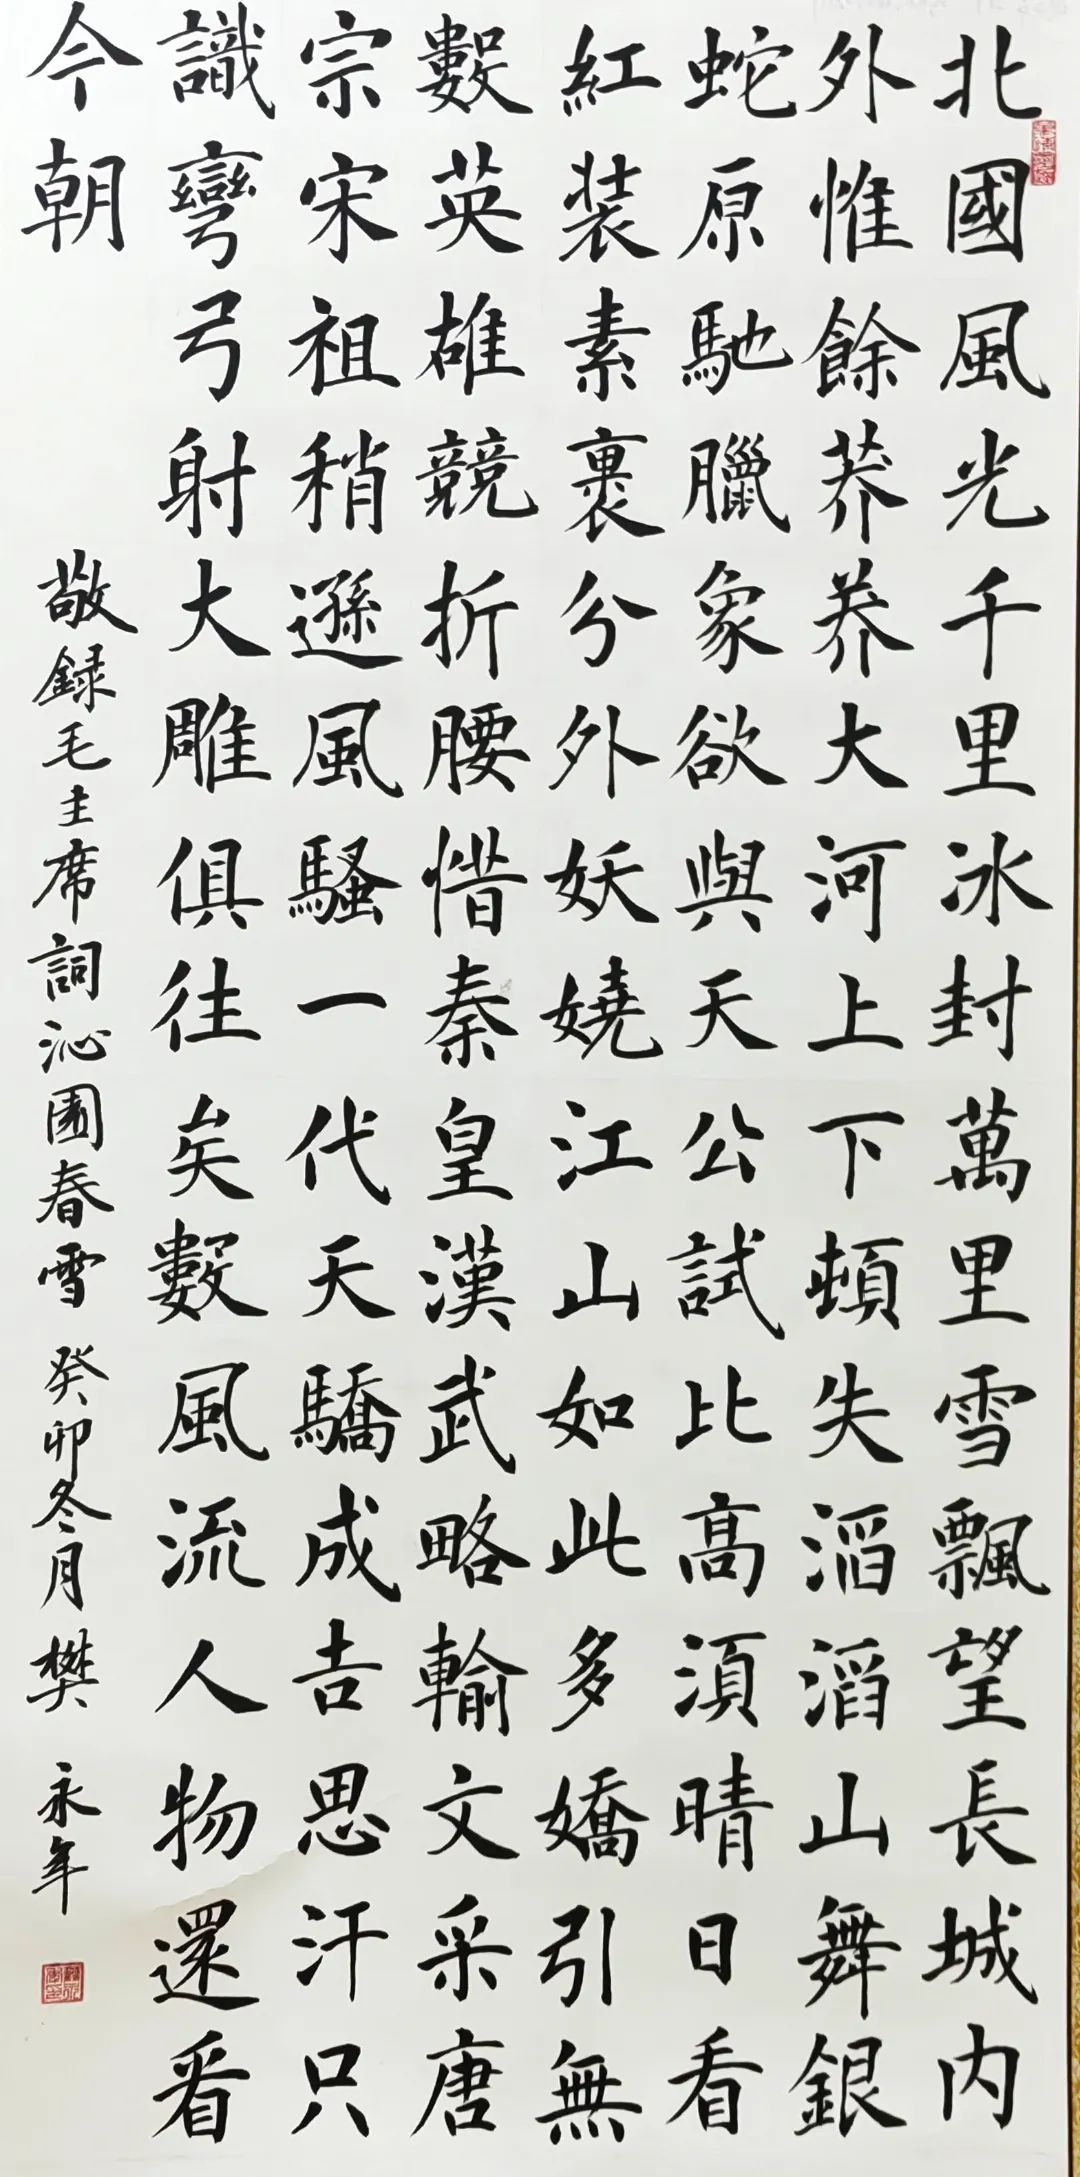 北國風光千里冰封萬里雪飄望長城内
外惟餘莽莽大河上下頓失滔滔山舞銀
蛇原馳臘象欲與天公試比高須晴日看
紅装素裹分外妖嬈江山如此多嬌引無
數英雄競折腰惜秦皇漢武略輸文采唐
宗宋祖稍遜風騷一代天驕成吉思汗只
識彎弓射大雕俱往矣數風流人物還看
今朝
敬録毛主席詞沁園春雪 癸卯冬月 樊永年